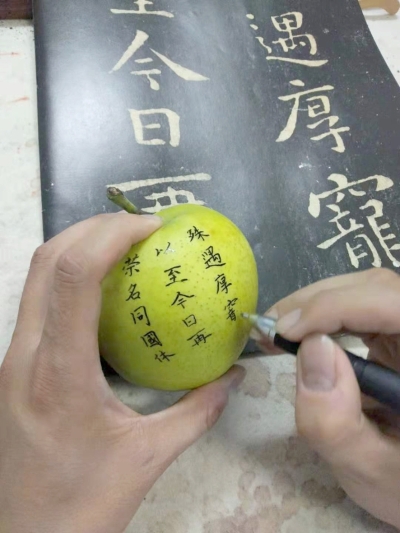 遇厚寵
至今日再
殊遇厚
以至今日再
荣名同國休